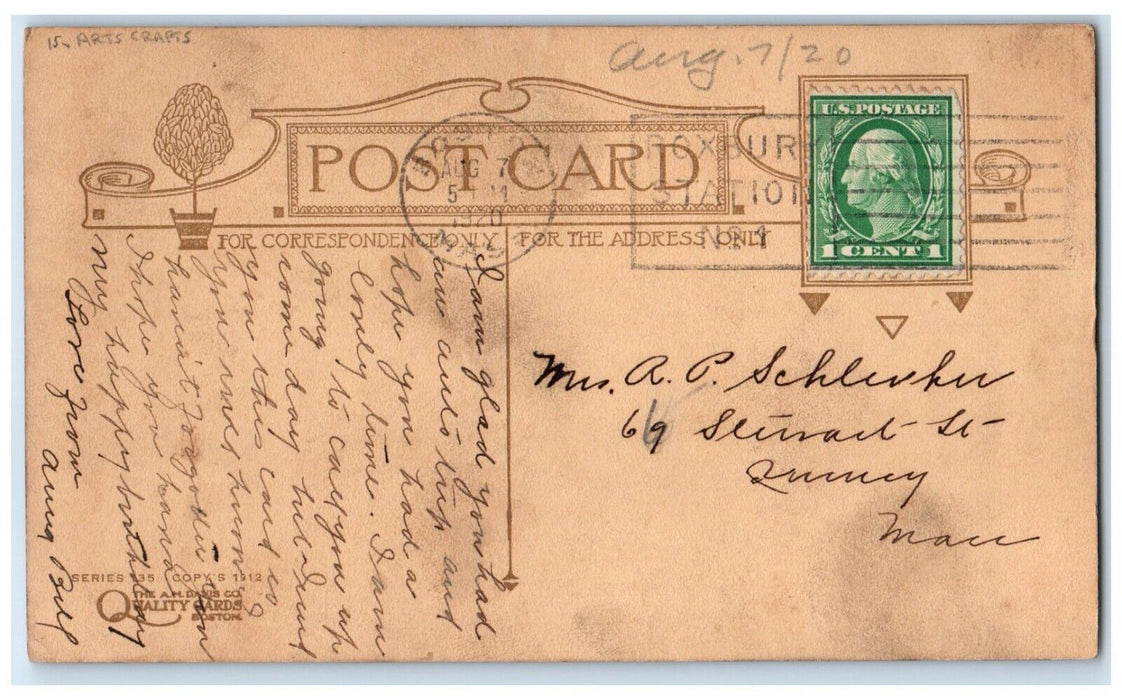 15- ARTS CRAFTS
Aug. 7/20
POST CARD
FOR CORRESPONDENCE ONLY
FOR THE ADDRESS ONLY
BOSTON
AUG 7
5
1920
MASS
ROXBURY
STATION
No 1
U.S. POSTAGE
1 CENT 1
Mrs. A. P.
69 Stewart St
Quincy
Mass
I am glad you had
an auto trip and
hope you had a
lovely time. I am
going to call you up
some day but I sent
you this card so
you
haven't forgotten you
I hope you have
my happy birthday
Love from
Aunt
SERIES 135 COPY'S 1912
THE A.M. DAVIS CO.
QUALITY CARDS
BOSTON.